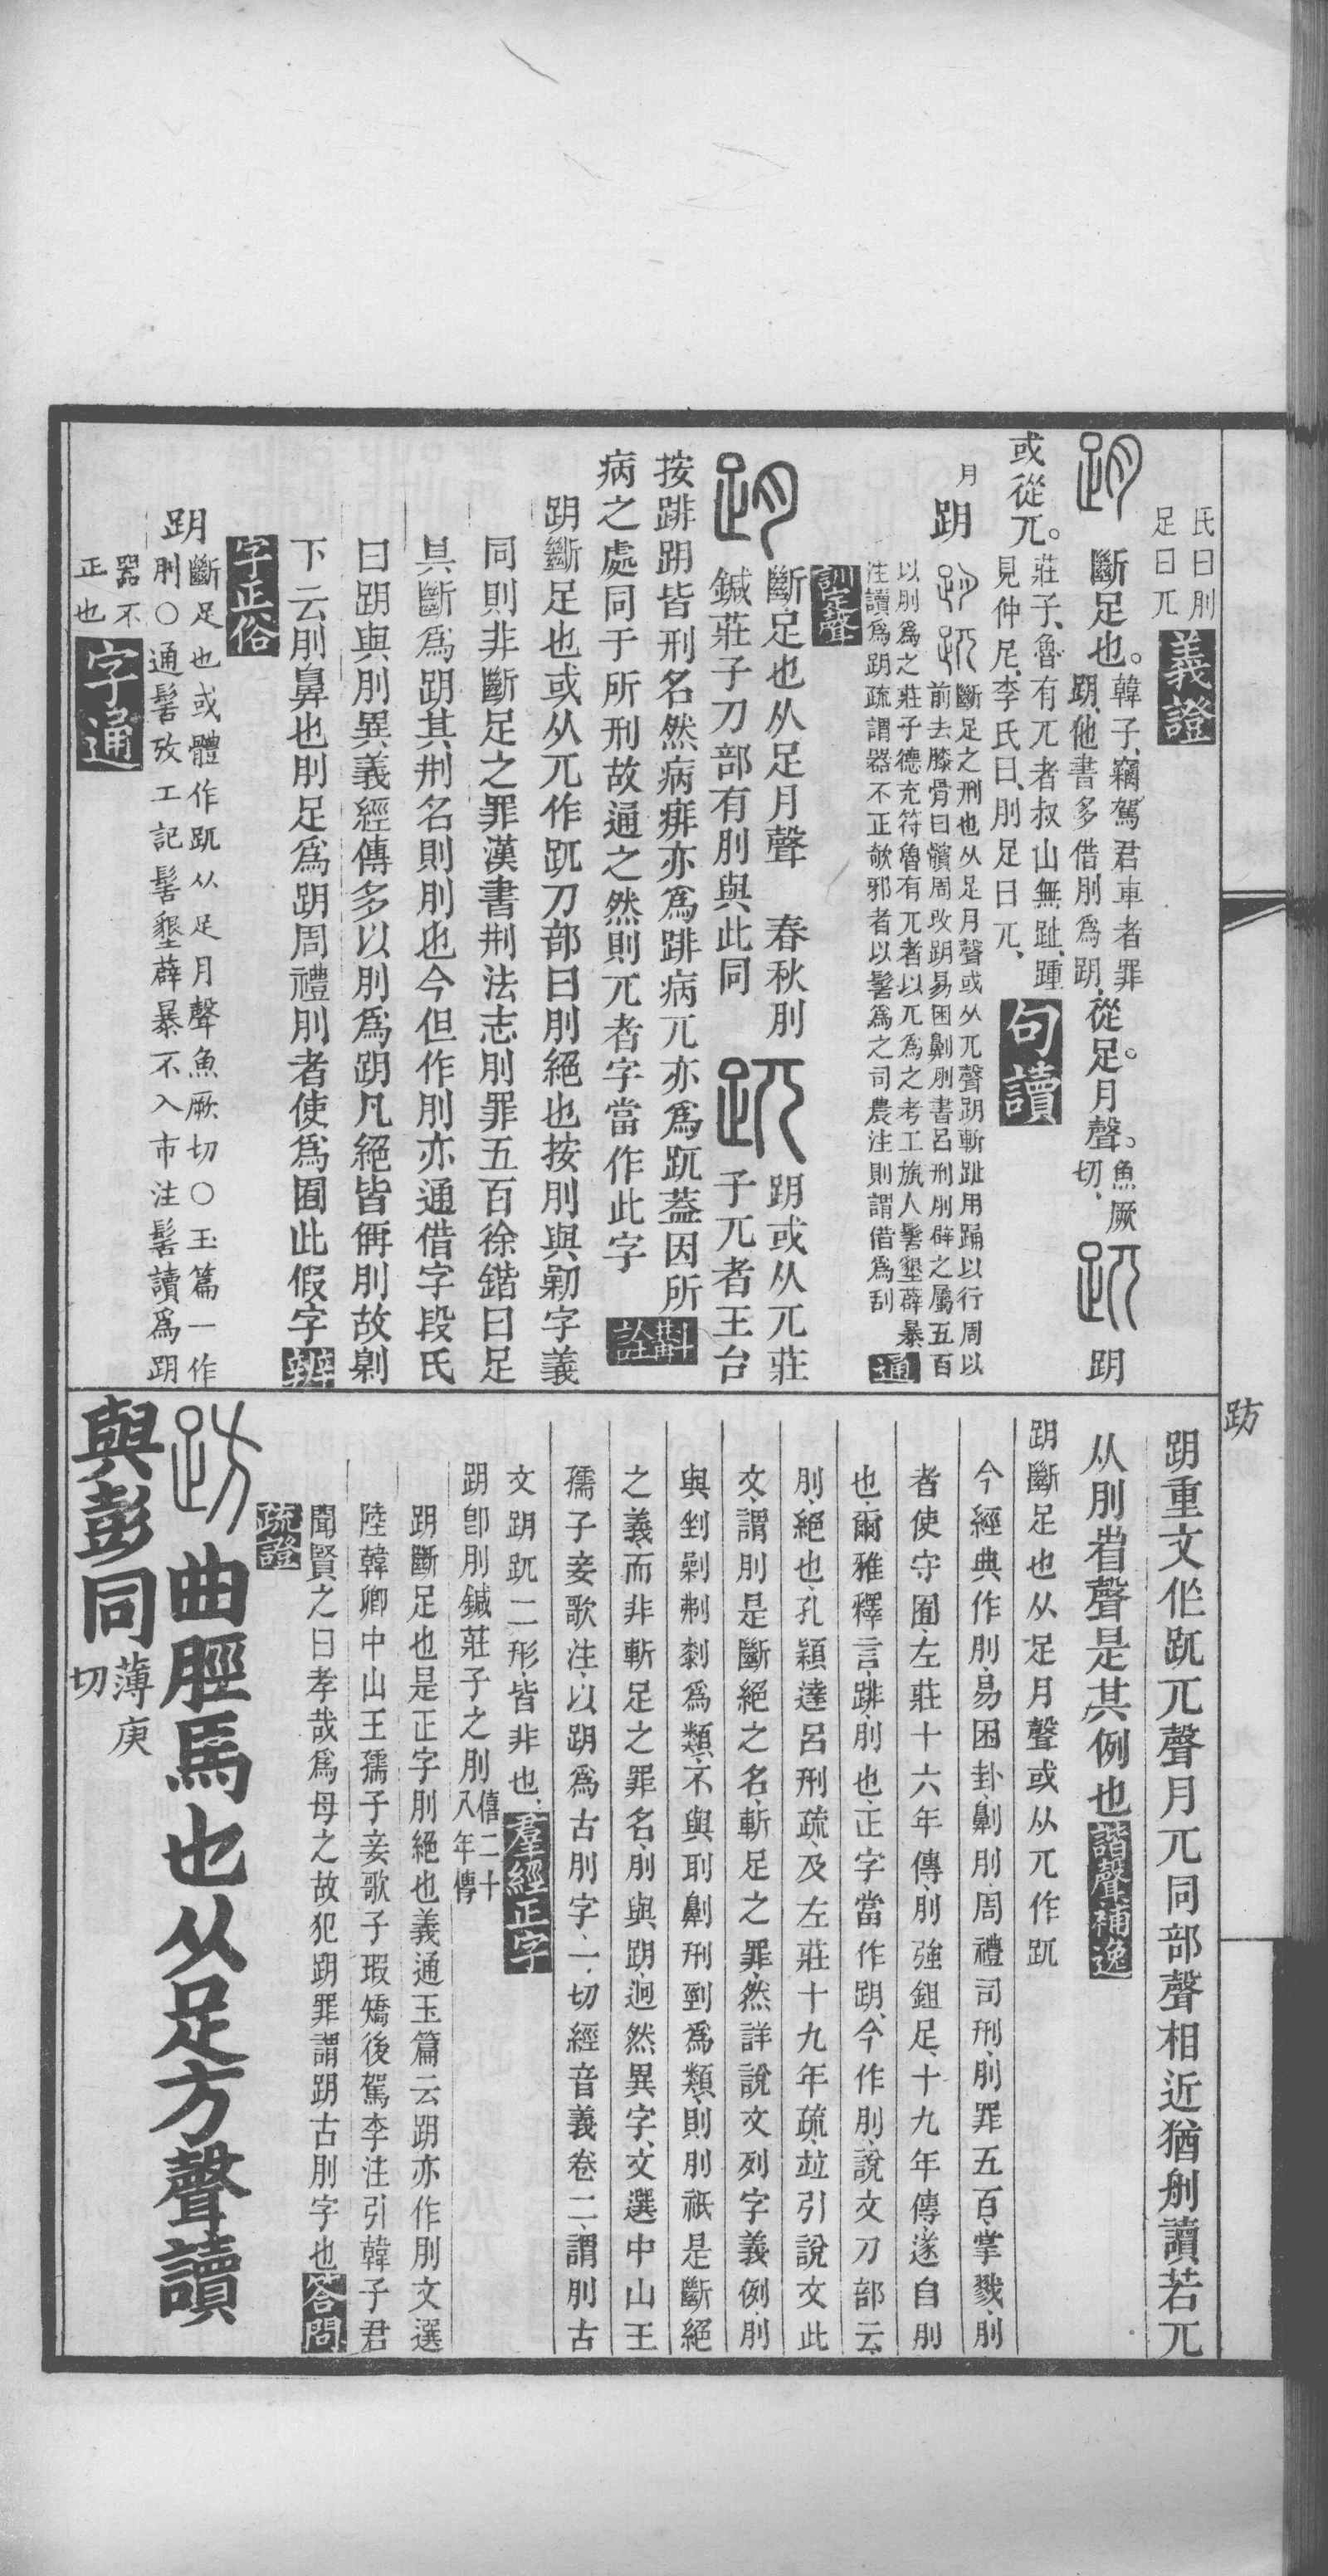 氏曰刖
足曰兀
義證
跀
斷足也。
韓子、竊駕君車者罪
跀、他書多借刖爲跀、
從足。月聲。
魚厥
切、
𧿁
跀
或從兀。
莊子、魯有兀者叔山無趾、踵
見仲尼、李氏曰、刖足曰兀、
句讀
月
跀
跀𧿁
斷足之刑也从足月聲或从兀聲跀斬趾用踊以行周以
前去膝骨曰髕周改跀易困劓刖書呂刑剕辟之屬五百
以刖爲之莊子德充符魯有兀者以兀爲之考工旊人髻墾薜暴
注讀爲跀疏謂器不正欹邪者以髻爲之司農注則謂借爲刮
通
訓定聲
跀
斷足也从足月聲　春秋刖
鍼莊子刀部有刖與此同
𧿁
跀或从兀莊
子兀者王台
按跸跀皆刑名然病痱亦爲跸病兀亦爲𧿁蓋因所
病之處同于所刑故通之然則兀者字當作此字
斠詮
跀斷足也或从兀作𧿁刀部曰刖絕也按刖與劓字義
同則非斷足之罪漢書刑法志刖罪五百徐鍇曰足
具斷爲跀其刑名則刖也今但作刖亦通借字段氏
曰跀與刖異義經傳多以刖爲跀凡絕皆偁刖故劓
下云刖鼻也刖足爲跀周禮刖者使爲囿此假字
辨
字正俗
跀
斷足也或體作𧿁从足月聲魚厥切○玉篇一作
刖○通髻攷工記髻墾薜暴不入市注髻讀爲跀
器不
正也
字通
跀重文作𧿁兀聲月兀同部聲相近猶刖讀若兀
从刖省聲是其例也
諧聲補逸
跀斷足也从足月聲或从兀作𧿁
今經典作刖、易困卦、劓刖、周禮司刑、刖罪五百、掌戮、刖
者使守囿、左莊十六年傳、刖強鉏足、十九年傳、遂自刖
也、爾雅釋言、跸、刖也、正字當作跀、今作刖、說文刀部云、
刖、絕也、孔穎達呂刑疏、及左莊十九年疏、竝引說文此
文、謂刖是斷絕之名、斬足之罪、然詳說文列字義例、刖
與剉剿制刜爲類、不與刵劓刑剄爲類、則刖祇是斷絕
之義、而非斬足之罪名、刖與跀、迥然異字、文選中山王
孺子妾歌注、以跀爲古刖字、一切經音義卷二、謂刖古
文跀𧿁二形、皆非也、
羣經正字
跀卽刖鍼莊子之刖
僖二十
八年傳
跀斷足也是正字刖絕也義通玉篇云跀亦作刖文選
陸韓卿中山王孺子妾歌子瑕矯後駕李注引韓子君
聞賢之曰孝哉爲母之故犯跀罪謂跀古刖字也
荅問
疏證
趽
曲脛馬也从足方聲讀
與彭同
薄庚
切
趽